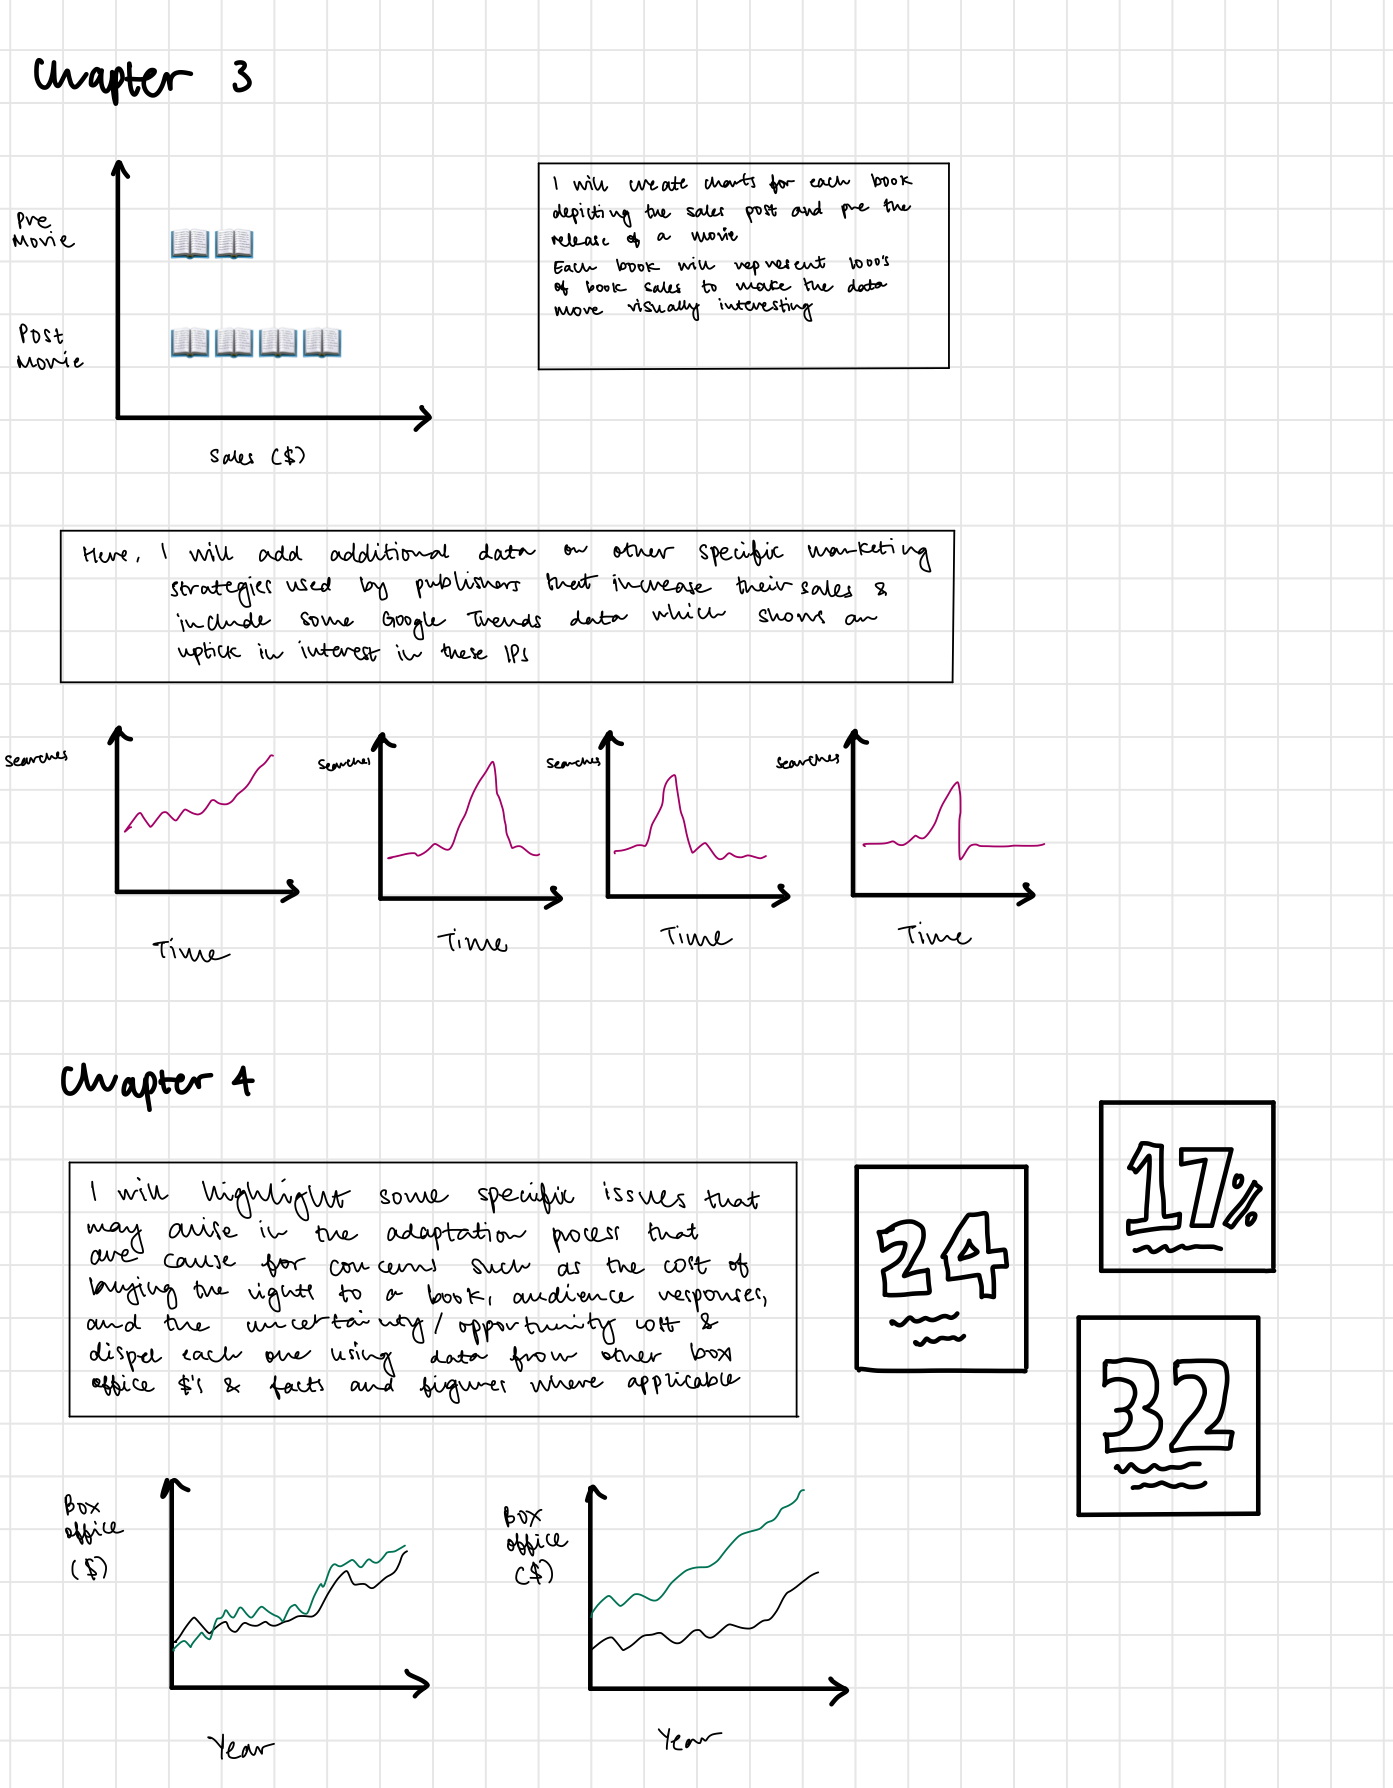 Chapter 3
Pre
Movie
Post
Movie
Sales ($)
I will create charts for each book
depicting the sales post and pre the
release of a movie
Each book will represent 1000's
of book sales to make the data
more visually interesting
Here, I will add additional data on other specific marketing
strategies used by publishers that increase their sales &
include some Google Trends data which shows an
uptick in interest in these IPs
Searches
Time
Searches
Time
Searches
Time
Searches
Time
Chapter 4
I will highlight some specific issues that
may arise in the adaptation process that
are cause for concerns such as the cost of
buying the rights to a book, audience responses,
and the uncertainty/opportunity cost &
dispel each one using data from other box
office $'s & facts and figures where applicable
24
17%
32
Box
office
($)
Year
Box
office
($)
Year